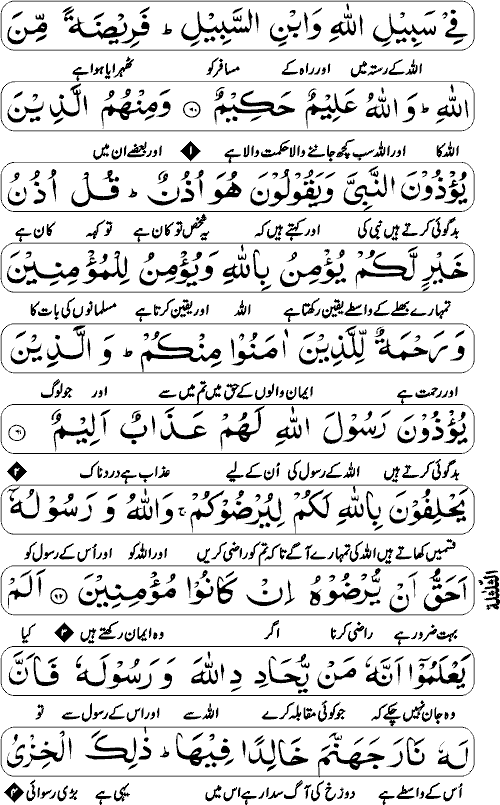 فِيْ سَبِيْلِ اللّٰهِ وَابْنِ السَّبِيْلِ ؕ فَرِيْضَةً مِّنَ
اللہ کے رستہ میں اور راہ کے مسافر کو ٹھہرایا ہوا ہے
اللّٰهِ ؕ وَاللّٰهُ عَلِيْمٌ حَكِيْمٌ ۝۶۰ وَمِنْهُمُ الَّذِيْنَ
اللہ کا اور اللہ سب کچھ جاننے والا حکمت والا ہے ۱ اور بعضے ان میں
يُؤْذُوْنَ النَّبِيَّ وَيَقُوْلُوْنَ هُوَ اُذُنٌ ؕ قُلْ اُذُنُ
بدگوئی کرتے ہیں نبی کی اور کہتے ہیں کہ یہ شخص تو کان ہے تو کہہ کان ہے
خَيْرٍ لَّكُمْ يُؤْمِنُ بِاللّٰهِ وَيُؤْمِنُ لِلْمُؤْمِنِيْنَ
تمہارے بھلے کے واسطے یقین رکھتا ہے اللہ اور یقین کرتا ہے مسلمانوں کی بات کا
وَرَحْمَةٌ لِّلَّذِيْنَ اٰمَنُوْا مِنْكُمْ ؕ وَالَّذِيْنَ
اور رحمت ہے ایمان والوں کے حق میں تم میں سے اور جو لوگ
يُؤْذُوْنَ رَسُوْلَ اللّٰهِ لَهُمْ عَذَابٌ اَلِيْمٌ ۝۶۱
بدگوئی کرتے ہیں اللہ کے رسول کی اُن کے لیے عذاب ہے دردناک ۲
يَحْلِفُوْنَ بِاللّٰهِ لَكُمْ لِيُرْضُوْكُمْ ۚ وَاللّٰهُ وَرَسُوْلُهٗۤ
قسمیں کھاتے ہیں اللہ کی تمہارے آگے تاکہ تم کو راضی کریں اور اللہ کو اور اُس کے رسول کو
اَحَقُّ اَنْ يُّرْضُوْهُ اِنْ كَانُوْا مُؤْمِنِيْنَ ۝۶۲ اَلَمْ
بہت ضرور ہے راضی کرنا اگر وہ ایمان رکھتے ہیں ۳ کیا
يَعْلَمُوْۤا اَنَّهٗ مَنْ يُّحَادِدِ اللّٰهَ وَرَسُوْلَهٗ فَاَنَّ
وہ جان نہیں چکے کہ جو کوئی مقابلہ کرے اللہ سے اور اس کے رسول سے تو
لَهٗ نَارَ جَهَنَّمَ خَالِدًا فِيْهَا ؕ ذٰلِكَ الْخِزْيُ
اُس کے واسطے ہے دوزخ کی آگ سدا رہے اس میں یہی ہے بڑی رسوائی ۴